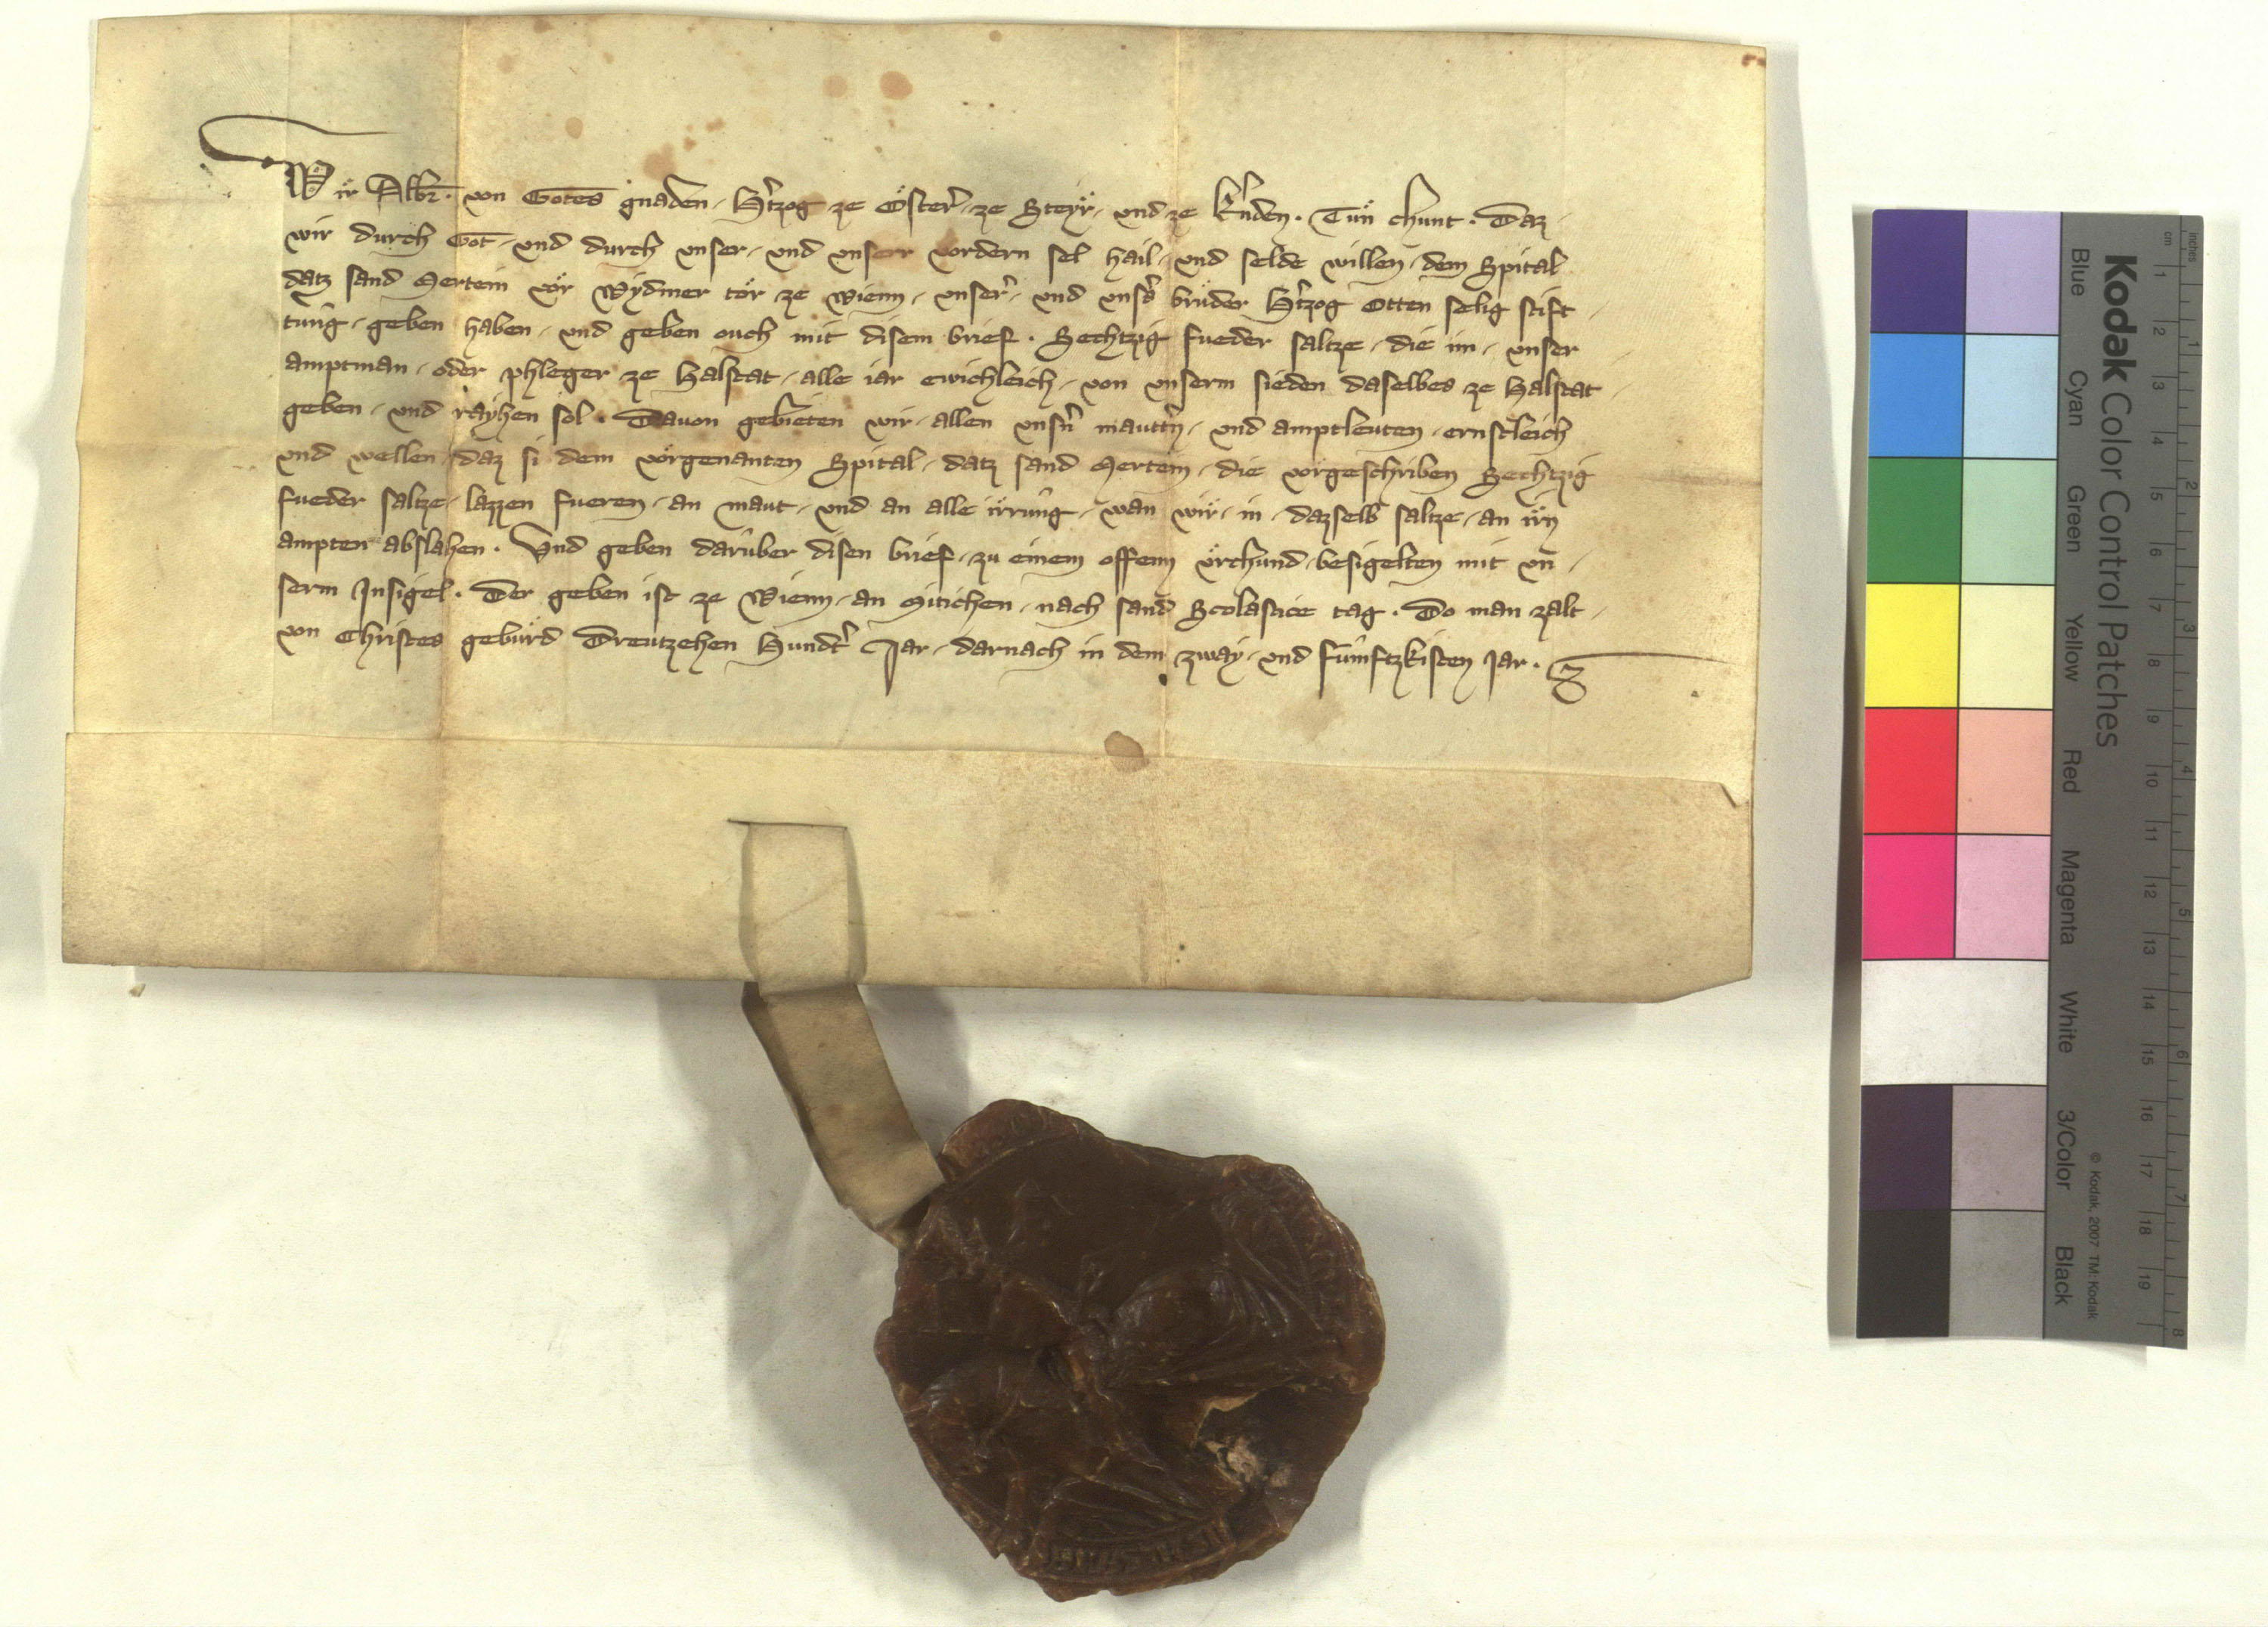 Wir Albr. von Gotes gnaden, Hˀtzog ze Österˀ, ze Steyr, und ze kˀnden. Tün chunt. Daz,
wir durch Got, und durch unser, und unserr vordern sel hail, und selde willen, dem Spital
datz sand Mertein vor Wydmer tor ze Wienn, unserˀ, und unsˀs brüder Hˀtzog Otten selig stift,
tung, geben haben, und geben ouch mit disem brief. Sechtzig fueder saltze, die im, unser
amptman, oder phleger ze Halstat, alle iar ewichleich, von unserm sieden daselbes ze Halstat,
geben, und rayhen sol. Davon gebieten wir, allen unsˀn mauttˀn, und amptleuten, ernstleich
und wellen, daz si dem vorgenanten Spital, datz sand Mertein, die vorgeschriben Sechtzig
fueder saltze, lazzen fueren, an maut, und an alle irrung, wan wir, in, dazselb saltze, an irn
ampten abslahen. Und geben darüber disen brief, zu einem offenn urchund, besigelten mit un,
serm Insigel. Der geben ist ze Wienn, an Mitichen, nach sand Scolastice tag. Do man zalt,
von Christes gebürd Dreutzehen Hundtˀ Jar, darnach in dem zway, und fümftzkisten Jar.
Kodak Color Control Patches
Blue Cyan Green Yellow Red Magenta White 3/Color Black
© Kodak, 2007 TM: Kodak
inches 1 2 3 4 5 6 7 8
cm 1 2 3 4 5 6 7 8 9 10 11 12 13 14 15 16 17 18 19